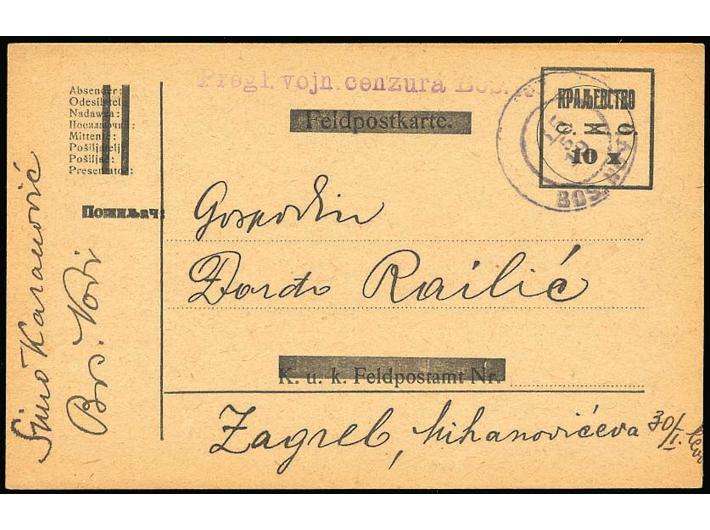 Pregl. vojn. cenzura Bos.
Absender:
Odesilatel:
Nadawca:
Посилаючий:
Mittente:
Pošiljatelj:
Pošiljač:
Presentator:
Feldpostkarte.
КРАЉЕВСТВО
С. Х. С.
10 х
BOS.
Пошиљач:
Simo Karanović
Bos. Novi
Gospodin
Đorđo Railić
K. u. k. Feldpostamt Nr.
Zagreb, Mihanovićeva 30/II.